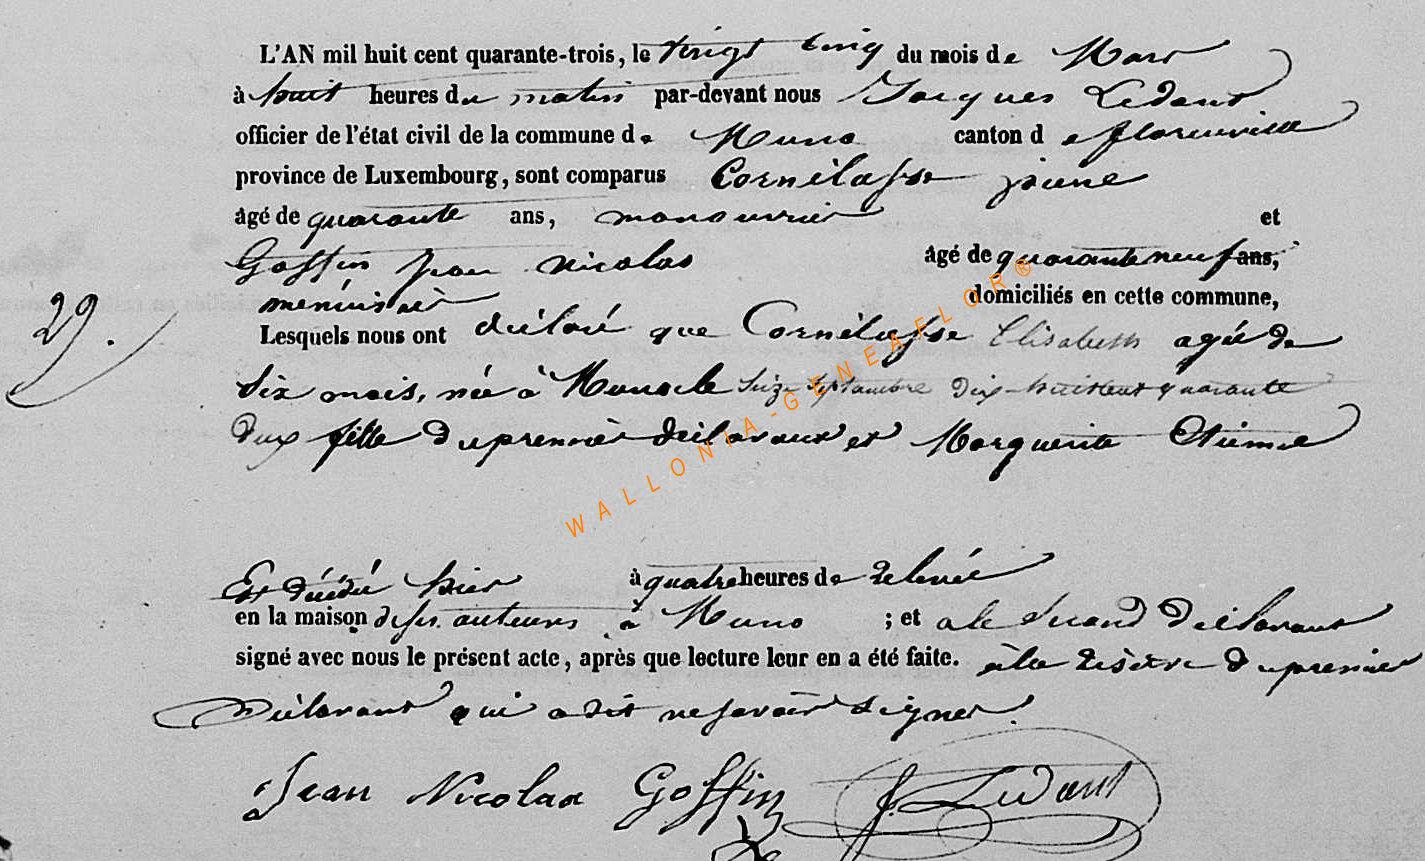 L'AN mil huit cent quarante-trois, le vingt cinq du mois de Mars
à huit heures du matin par-devant nous Jacques Ledant
officier de l'état civil de la commune de Muno canton de florenville
province de Luxembourg, sont comparus Cornélusse
âgé de quarante ans, manouvrier et
Goffin Jean Nicolas âgé de quarante neuf ans,
menuisier domiciliés en cette commune,
29.
Lesquels nous ont déclaré que Cornélusse Elisabeth agée de
six mois, née à Muno le seize septembre dix-huit cent quarante
deux fille du premier déclarant et Marguerite Etienne
WALLONIA-GENEAFLOR®
Est décédé hier à quatre heures de relevée
en la maison de ses auteurs à Muno ; et a le second déclarant
signé avec nous le présent acte, après que lecture leur en a été faite. à la réserve du premier
Déclarant qui a dit ne savoir signer.
Jean Nicolas Goffin J. Ledant